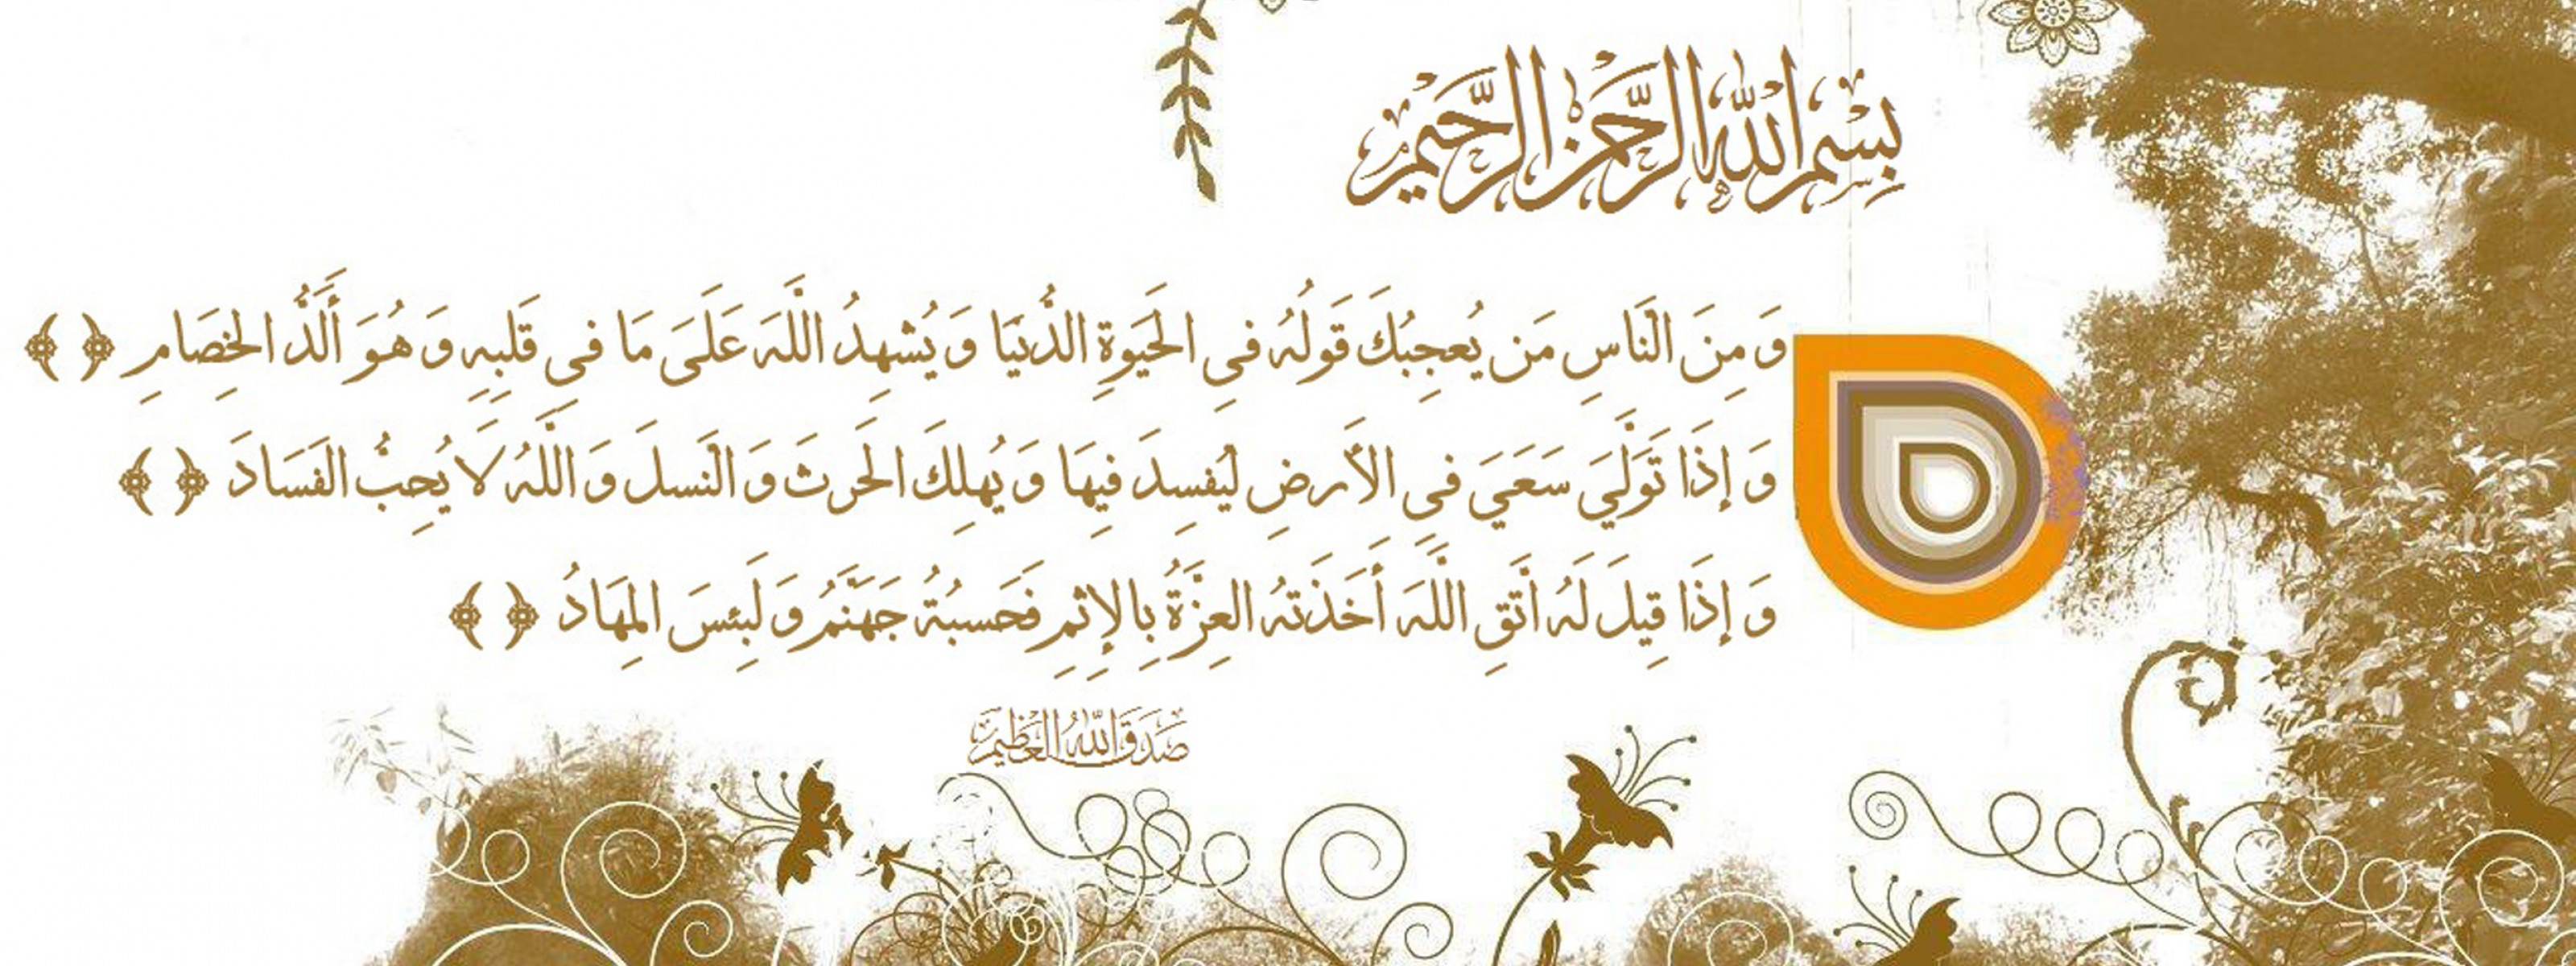 بِسْمِ اللهِ الرَّحْمٰنِ الرَّحِيمِ
وَمِنَ النَّاسِ مَن يُعجِبُكَ قَولُهُ فِي الحَيَوةِ الدُّنيَا وَيُشهِدُ اللَّهَ عَلَىَ مَا فِي قَلبِهِ وَهُوَ أَلَدُّ الخِصَامِ ﴿ ﴾
وَإِذَا تَوَلَّيَ سَعَيَ فِي الأَرضِ لِيُفسِدَ فِيهَا وَيُهلِكَ الحَرثَ وَالنَّسلَ وَاللَّهُ لاَ يُحِبُّ الفَسَادَ ﴿ ﴾
وَإِذَا قِيلَ لَهُ أتَّقِ اللَّهَ أَخَذَتهُ العِزَّةُ بِالإِثمِ فَحَسبُةُ جَهَنَّمُ وَلَبِئسَ المِهَادُ ﴿ ﴾
صَدَقَ اللهُ العَظِيمُ